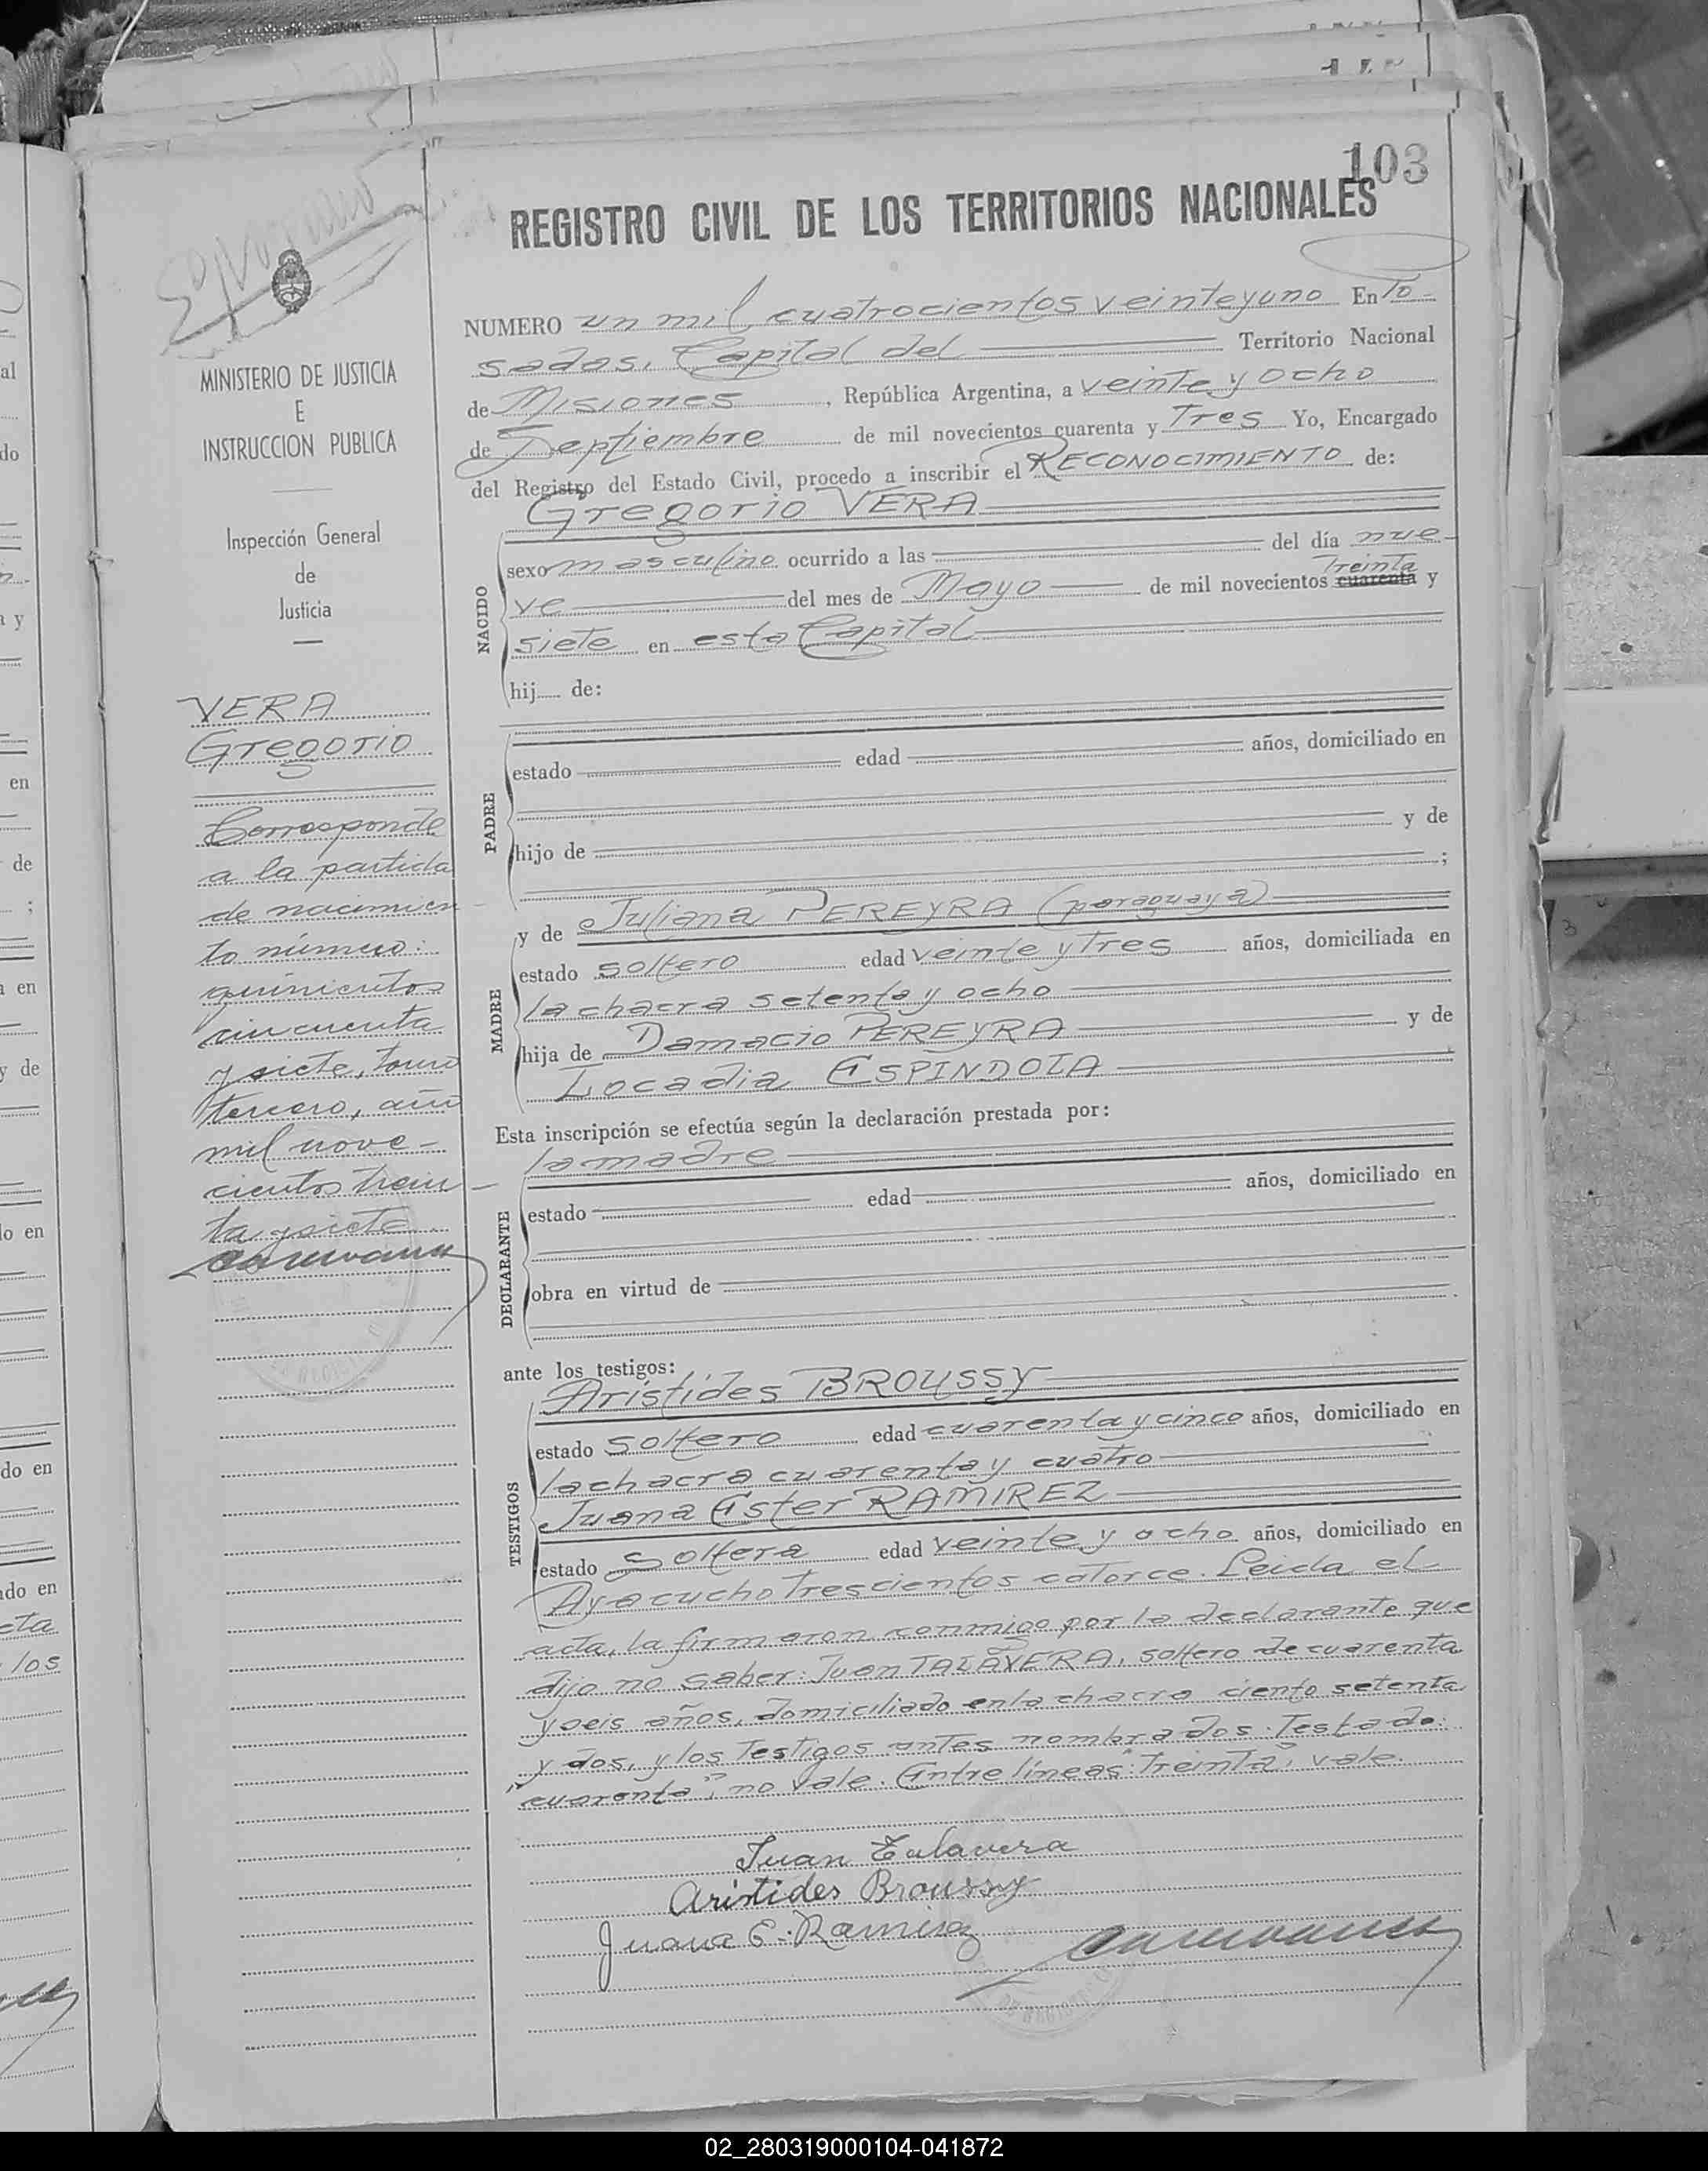 103
REGISTRO CIVIL DE LOS TERRITORIOS NACIONALES
MINISTERIO DE JUSTICIA
E
INSTRUCCION PUBLICA
Inspección General
de
Justicia
VERA
Gregorio
Corresponde
a la partida
de nacimien
to número:
quinientos
cincuenta
y siete, tomo
tercero, año
mil nove-
cientos trein-
ta y siete
NUMERO un mil cuatrocientos veinteyuno En Po-
sadas, Capital del Territorio Nacional
de Misiones, República Argentina, a veinte y ocho
de Septiembre de mil novecientos cuarenta y Tres Yo, Encargado
del Registro del Estado Civil, procedo a inscribir el RECONOCIMIENTO de:
Gregorio VERA
NACIDO
sexo masculino ocurrido a las del día nue-
Treinta
ve del mes de Mayo de mil novecientos cuarenta y
siete en esta Capital
hij de:
PADRE
estado edad años, domiciliado en
hijo de y de
;
MADRE
y de Juliana PEREYRA (paraguaya)
estado soltero edad veinte y Tres años, domiciliada en
la chacra setenta y ocho
hija de Damacio PEREYRA y de
Locadia ESPINDOLA
Esta inscripción se efectúa según la declaración prestada por:
la madre
DECLARANTE
estado edad años, domiciliado en
obra en virtud de
ante los testigos:
TESTIGOS
Arístides BROUSSY
estado soltero edad cuarenta y cinco años, domiciliado en
la chacra cuarenta y cuatro
Juana Ester RAMIREZ
estado Soltera edad veinte y ocho años, domiciliado en
Ayacucho Trescientos catorce. Leida el
acta, la firmaron conmigo por la declarante que
dijo no saber: Juan TALAVERA, soltero de cuarenta
y seis años, domiciliado en la chacra ciento setenta
y dos, y los Testigos antes nombrados. Testado:
"cuarenta", no vale. Entre líneas: "Treinta", vale.
Juan Talavera
Arístides Broussy
Juana E. Ramirez
al
do
a y
en
de
;
a en
y de
lo en
do en
ado en
cta
los
02_280319000104-041872